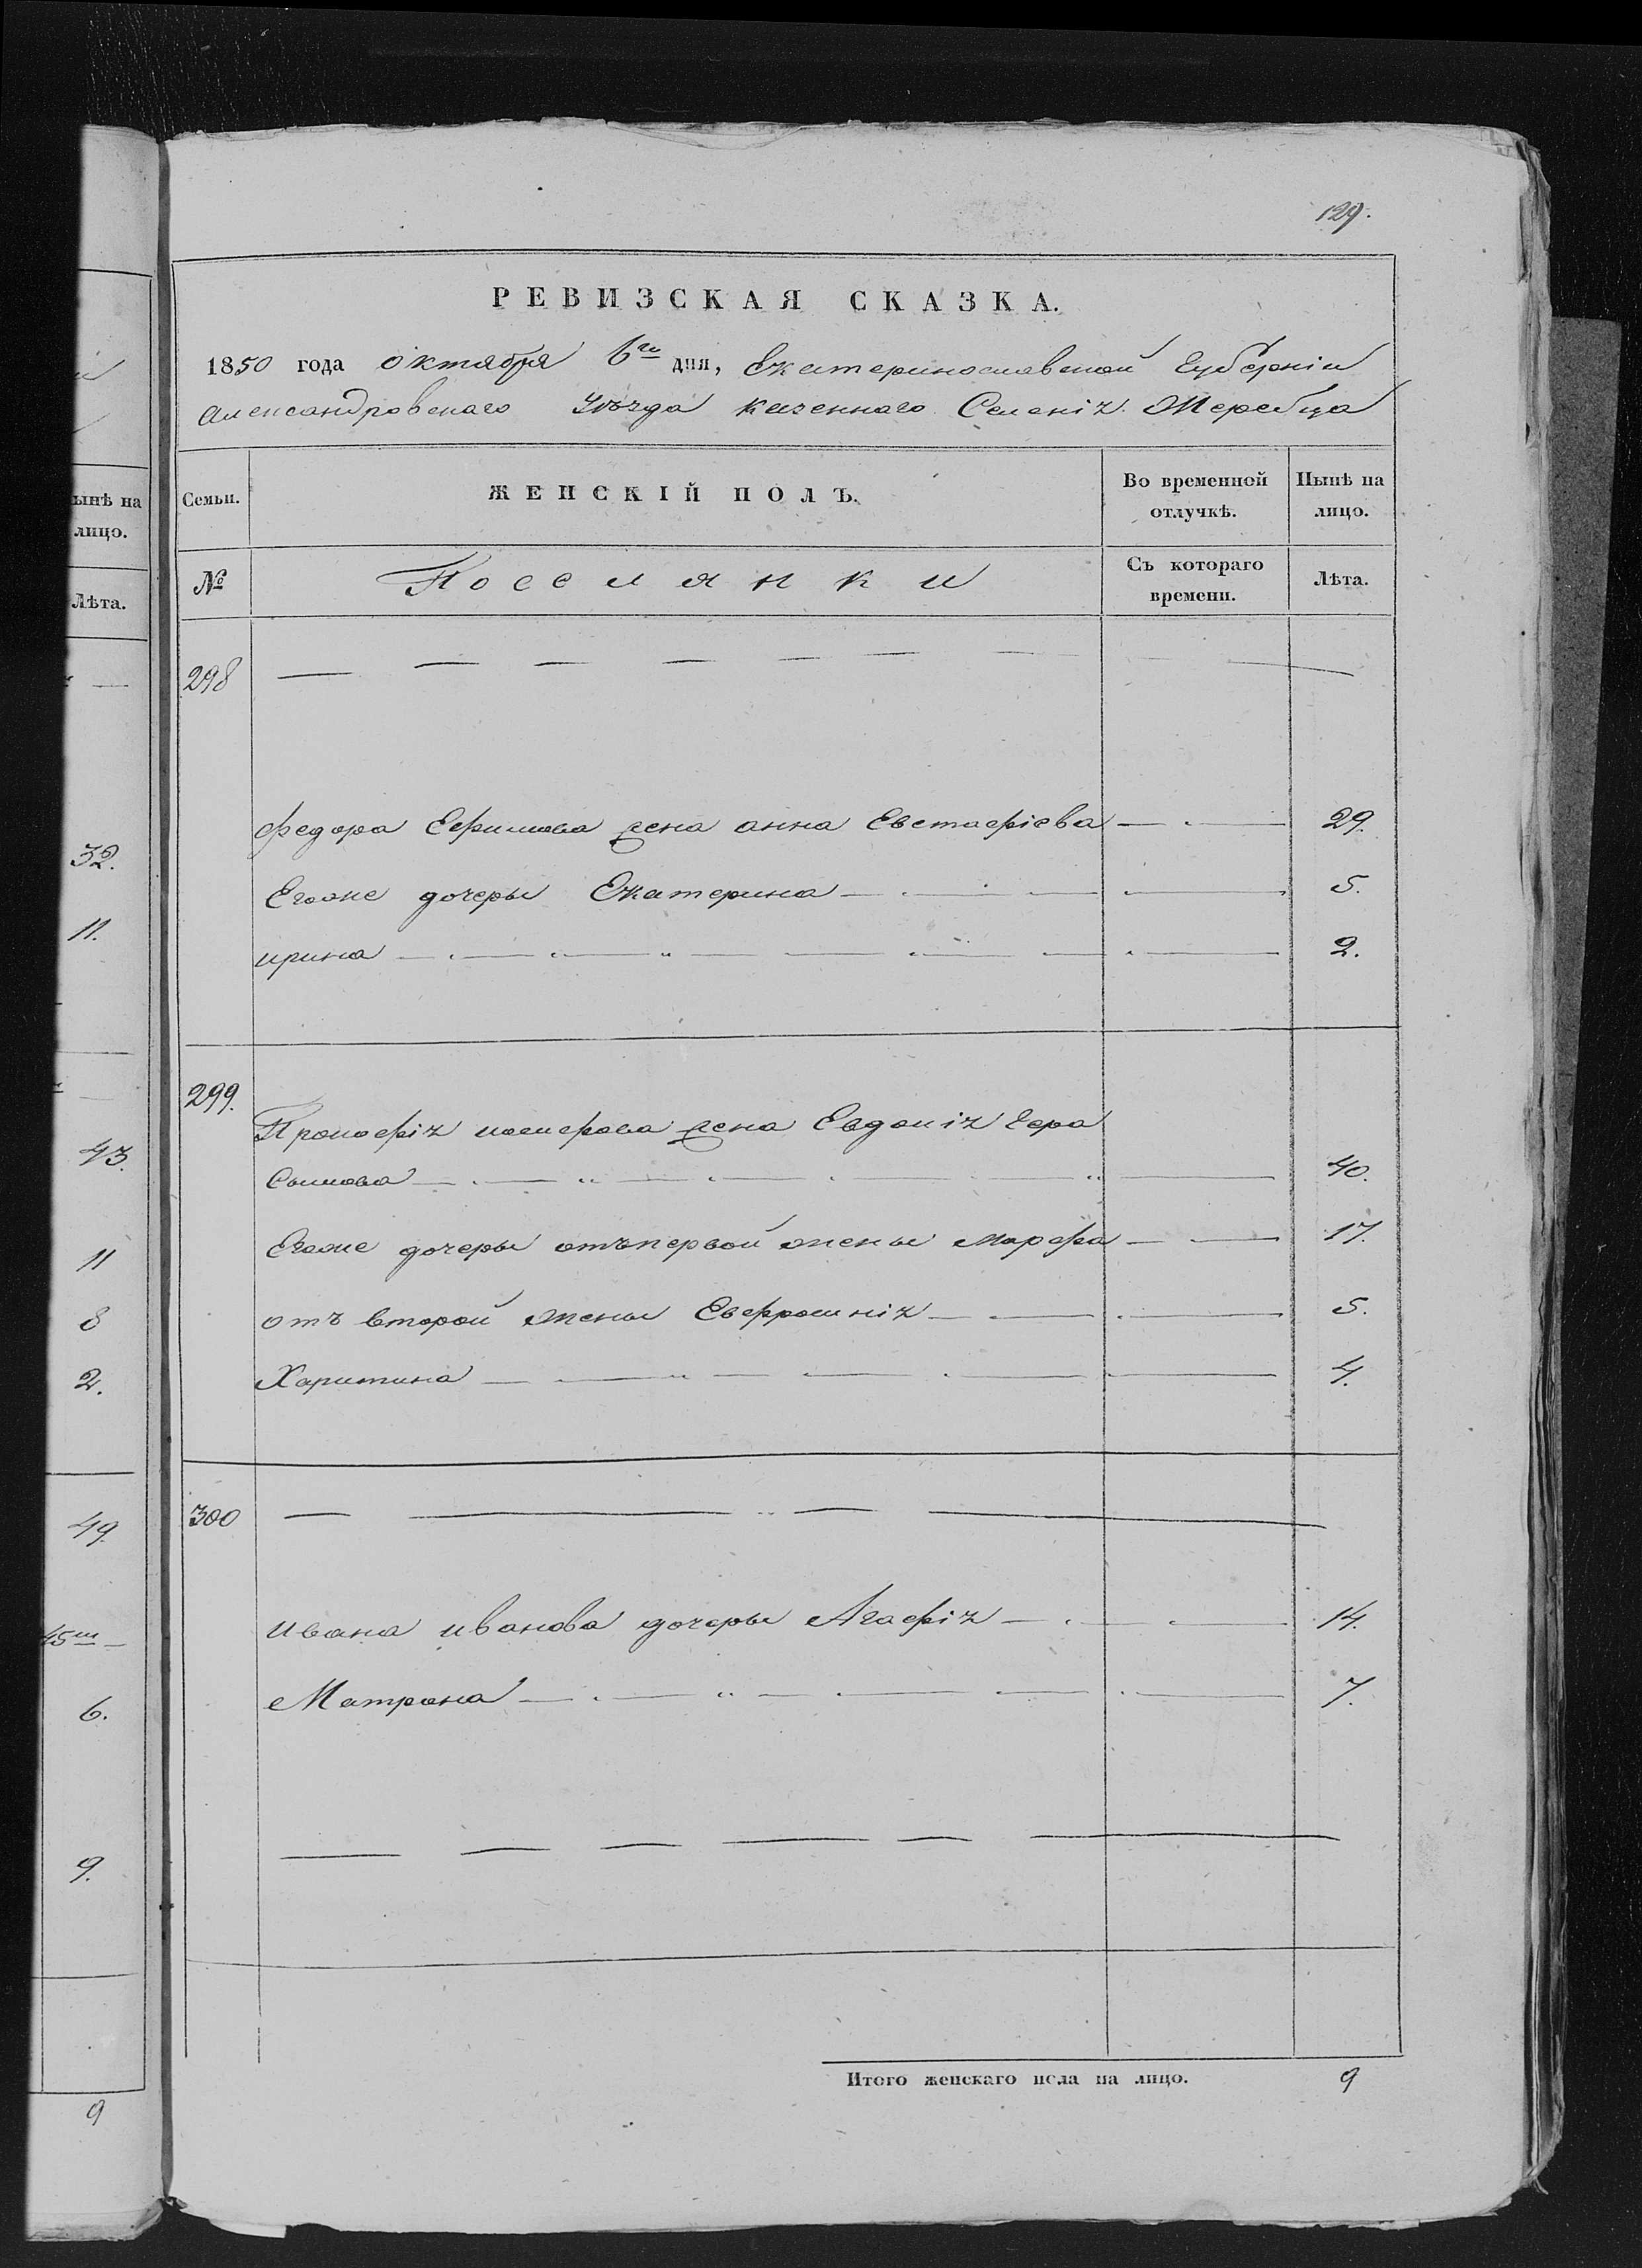 129.
РЕВИЗСКАЯ СКАЗКА.
1850 года октября 6го дня, Екатеринославской губерніи
Александровскаго уѣзда казеннаго Селенія Жеребца
Семьи. ЖЕНСКІЙ ПОЛЪ. Во временной отлучкѣ. Нынѣ на лицо.
№ Поселянки Съ котораго времени. Лѣта.
ынѣ на
лицо.
Лѣта.
298
федора Ефимова жена анна Евстафіева 29.
32.
Егоже дочеры Екатерина 5.
11.
ирина 2.
299.
Прокофія жена Евдокія Гера
43.
симова 40.
Егоже дочеры отъ первой жены марфа 17.
11
отъ второй жены Евфросинія 5.
8
Харитина 4.
2.
300
49
ивана иванова дочеры Агафія 14.
45
Матрона 7.
6.
9.
Итого женскаго пола на лицо. 9
9